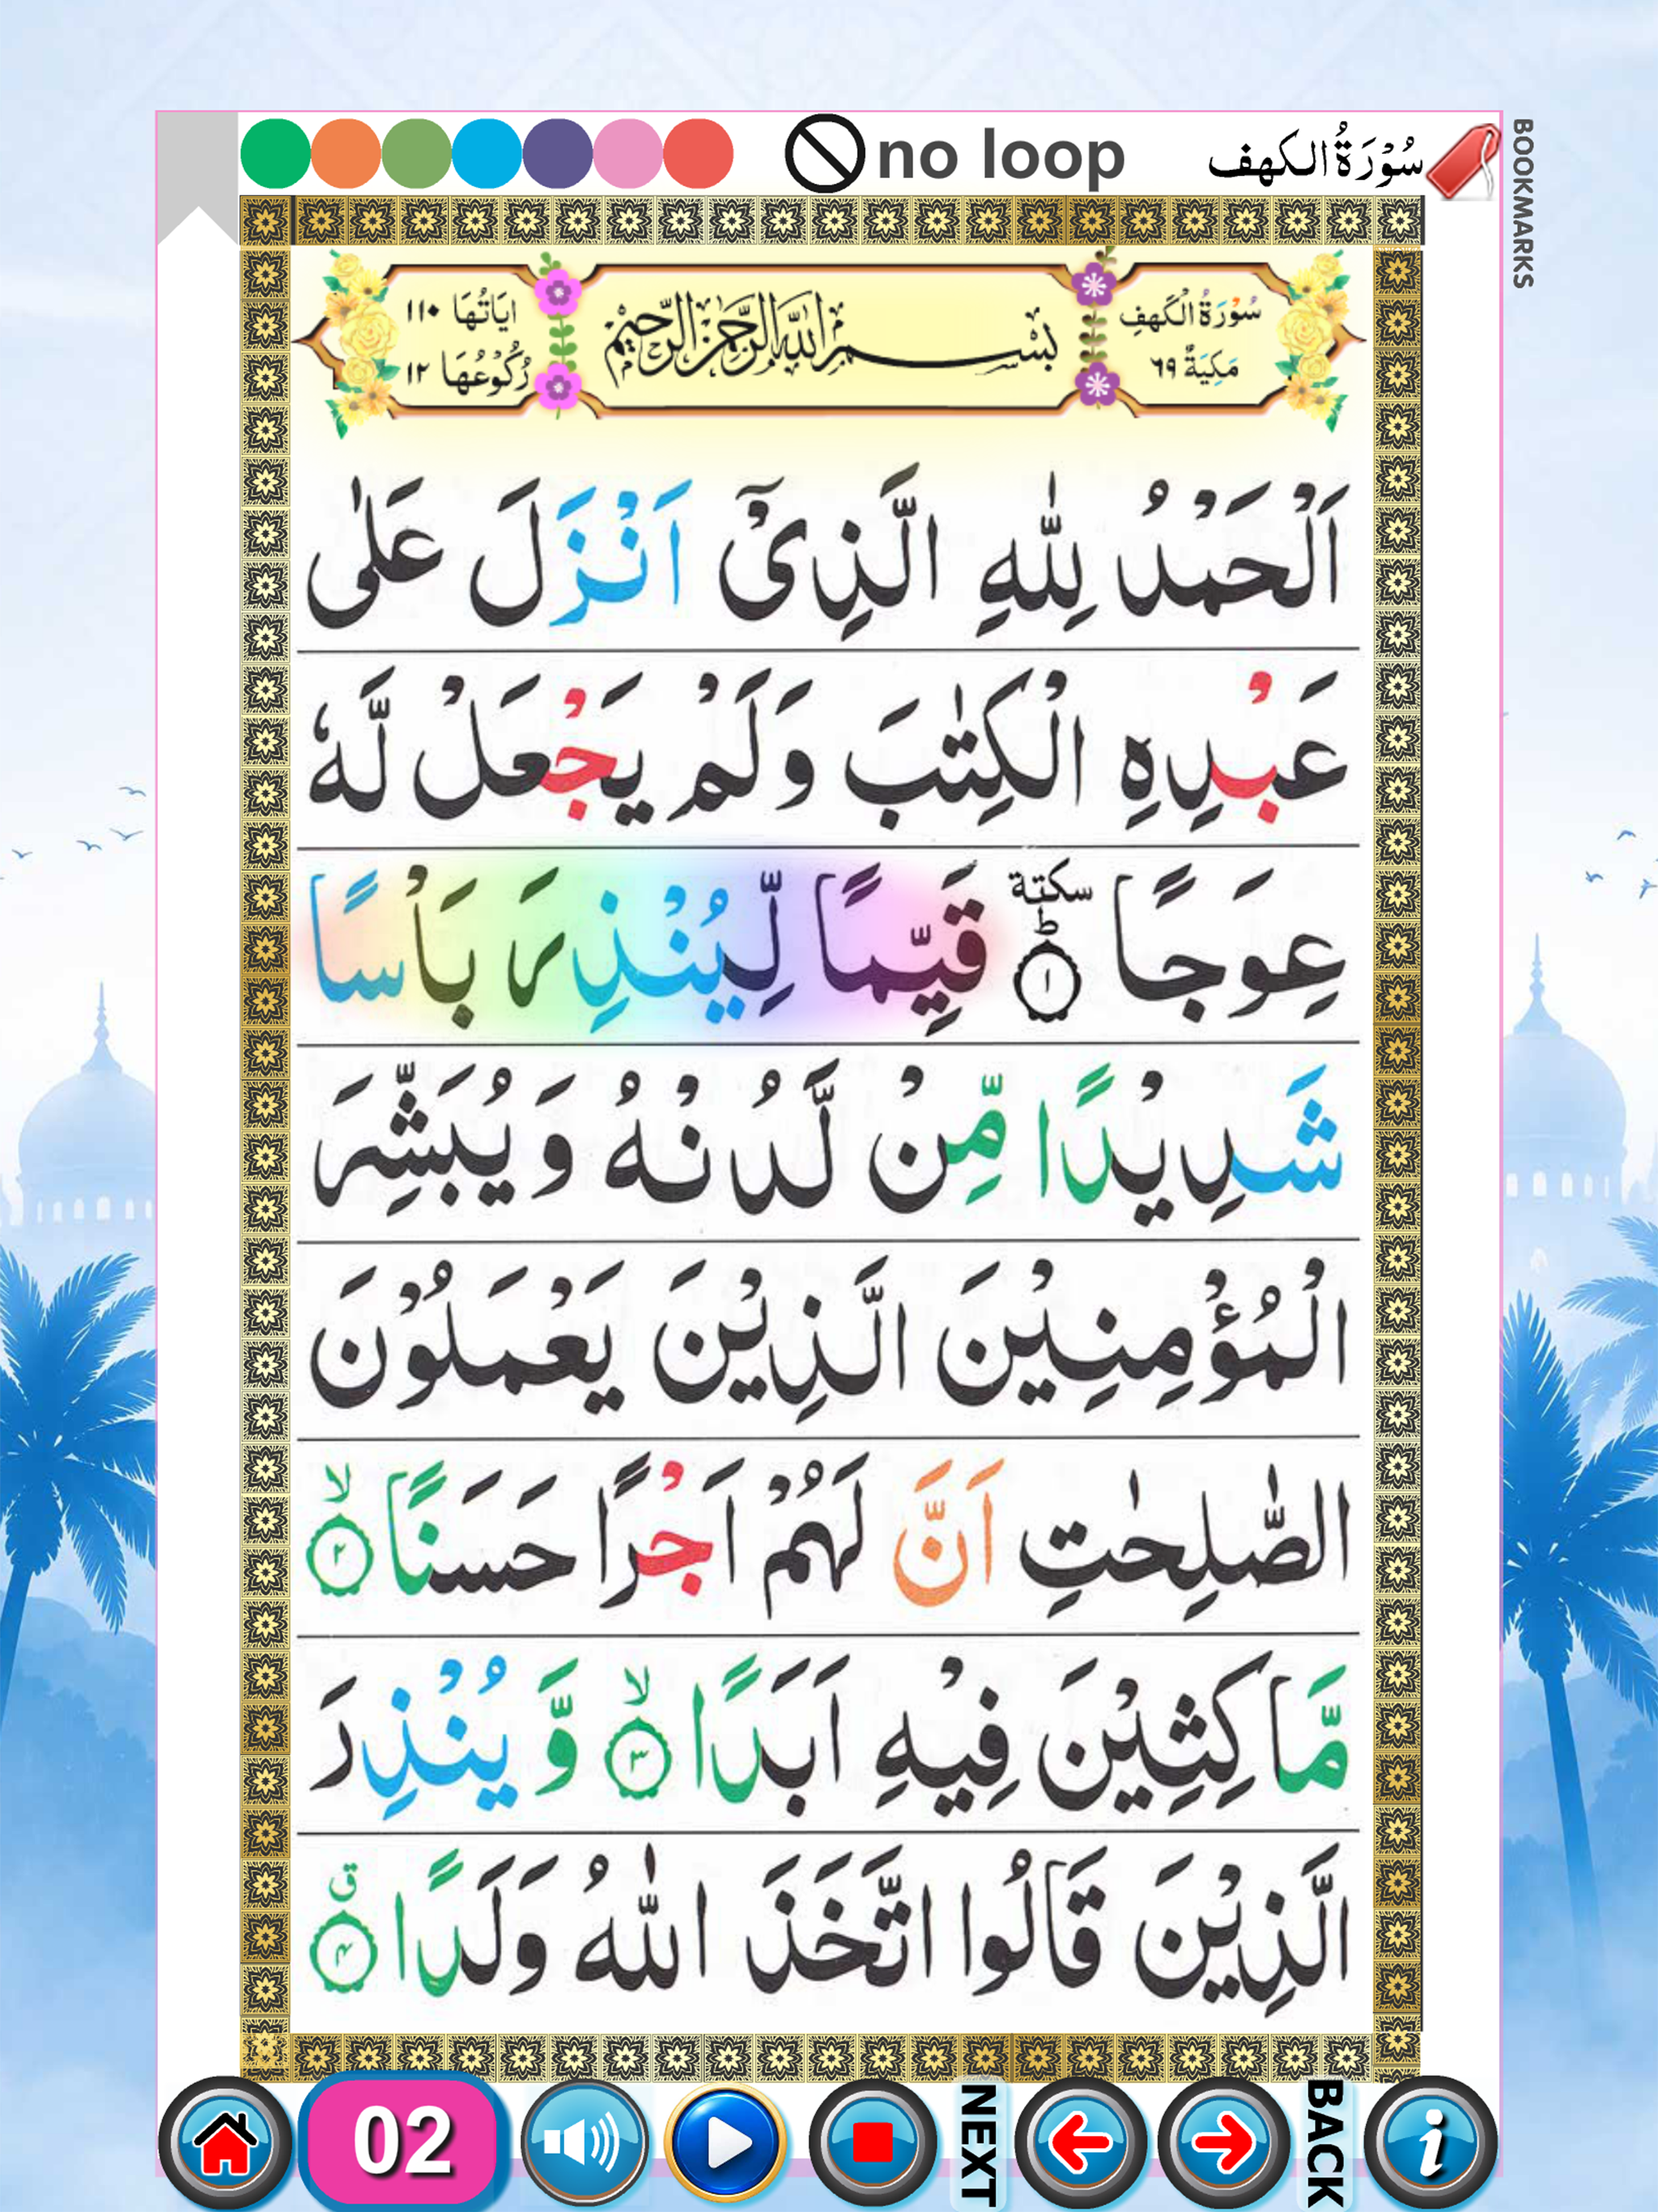 no loop
سُوْرَةُ الكهف
BOOKMARKS
سُوْرَةُ الْكَهفِ
مَكِيَةٌ ٦٩
بسم الله الرحمن الرحيم
ايَاتُهَا ١١٠
رُكُوْعُهَا ١٢
اَلْحَمْدُ لِلّٰهِ الَّذِىْٓ اَنْزَلَ عَلٰى
عَبْدِهِ الْكِتٰبَ وَلَمْ يَجْعَلْ لَّهٗ
عِوَجًا ؕ سكتة ١ قَيِّمًا لِّيُنْذِرَ بَاْسًا
شَدِيْدًا مِّنْ لَّدُنْهُ وَيُبَشِّرَ
الْمُؤْمِنِيْنَ الَّذِيْنَ يَعْمَلُوْنَ
الصّٰلِحٰتِ اَنَّ لَهُمْ اَجْرًا حَسَنًا ۙ ٢
مَّا كِثِيْنَ فِيْهِ اَبَدًا ۙ ٣ وَّيُنْذِرَ
الَّذِيْنَ قَالُوا اتَّخَذَ اللّٰهُ وَلَدًا ق ۴
02
NEXT
BACK
i